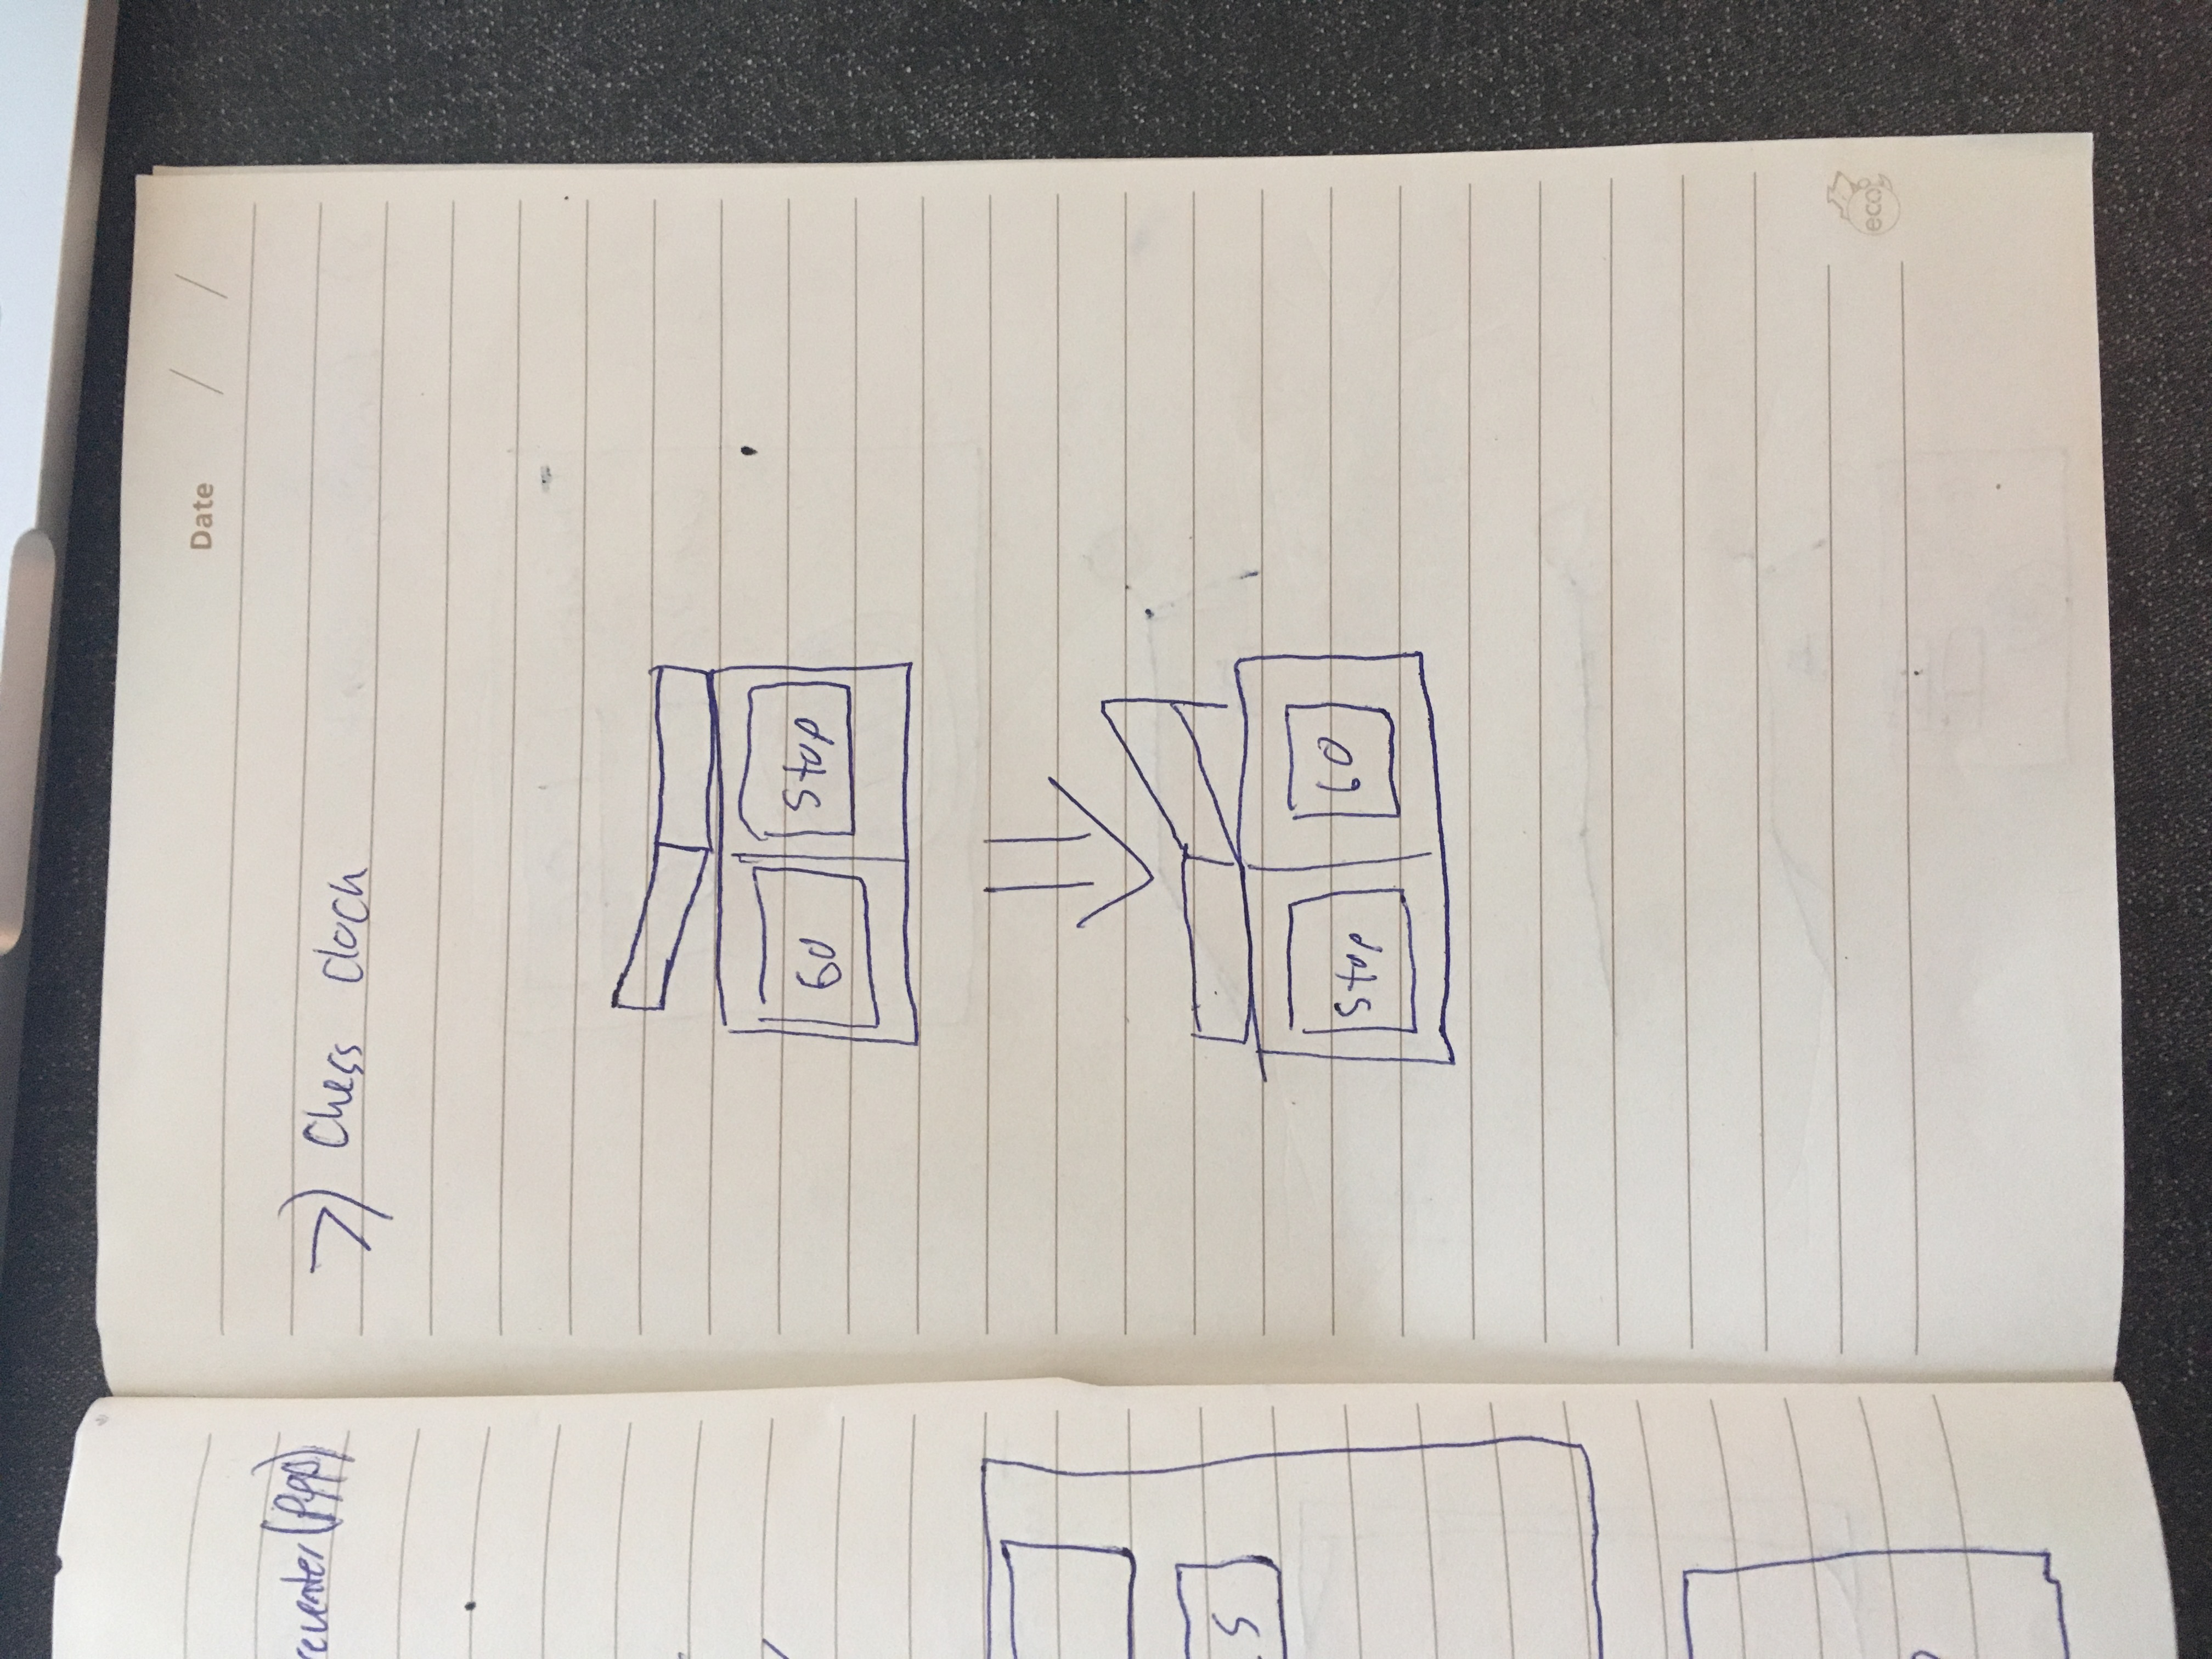 reventer (PPP)
Date / /
7) Chess clock
60 Stop
Stop 60
s
eco